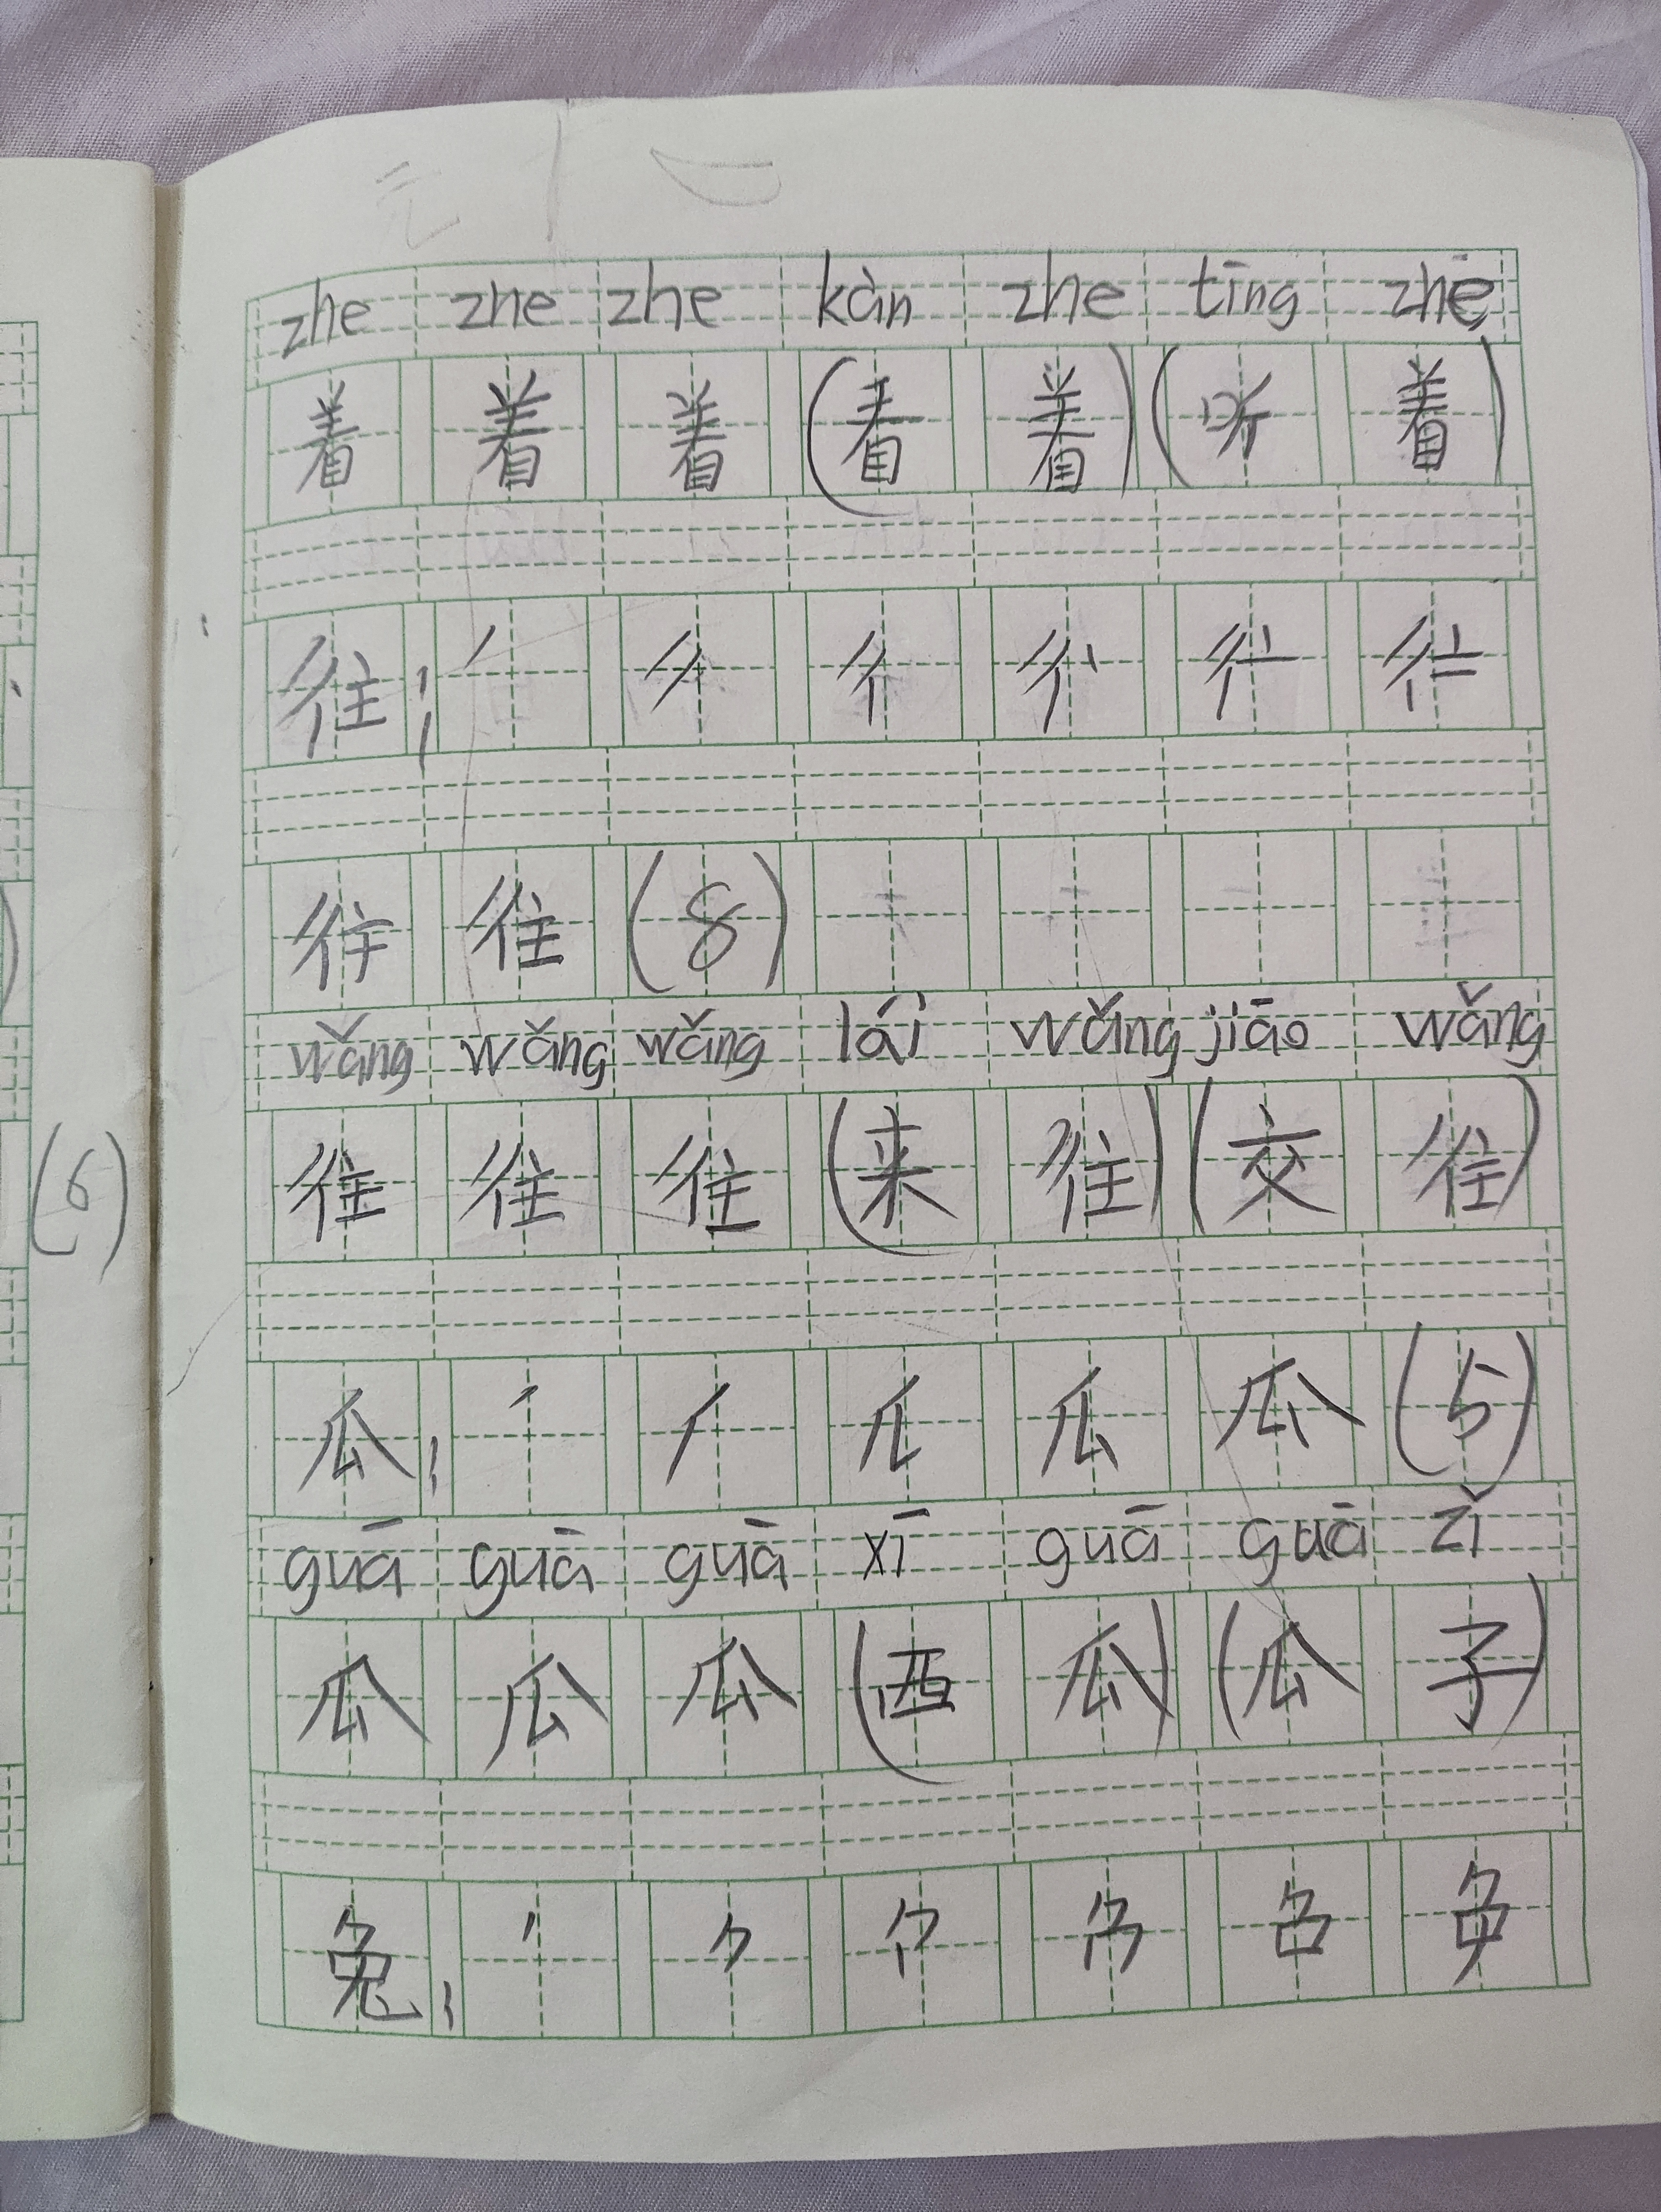 元
zhe zhe zhe kàn zhe tīng zhē
着 着 着 (看 着) (听 着)
往; ノ 彳
往 (8)
wǎng wǎng wǎng lái wǎng jiāo wǎng
往 往 往 (来 往) (交 往)
(6)
瓜; 瓜 (5)
guā guā guā xī guā guā zǐ
瓜 瓜 瓜 (西 瓜) (瓜 子)
兔;